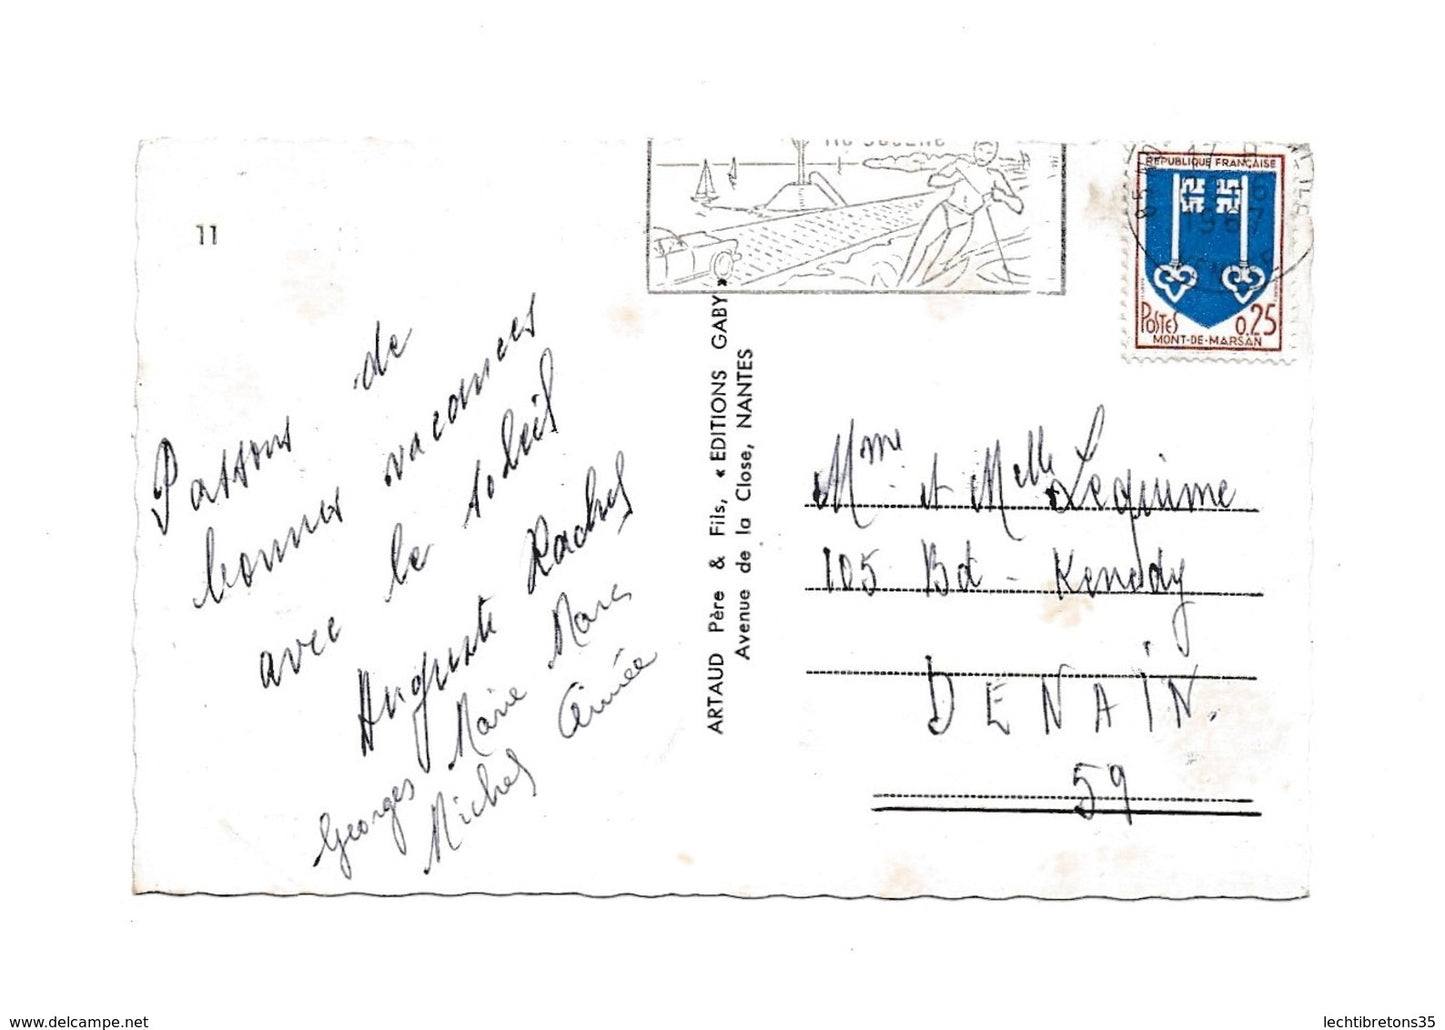 11
REPUBLIQUE FRANÇAISE
1967
POSTES 0,25
MONT-DE-MARSAN
Passons de
bonnes vacances
avec le soleil
Auguste Rachel
Georges Marie Marc
Michel Aimée
ARTAUD Père & Fils, « EDITIONS GABY »
Avenue de la Close, NANTES
Mme et Melle Lequime
105 Bd - Kenedy
DENAIN.
59
www.delcampe.net
lechtibretons35